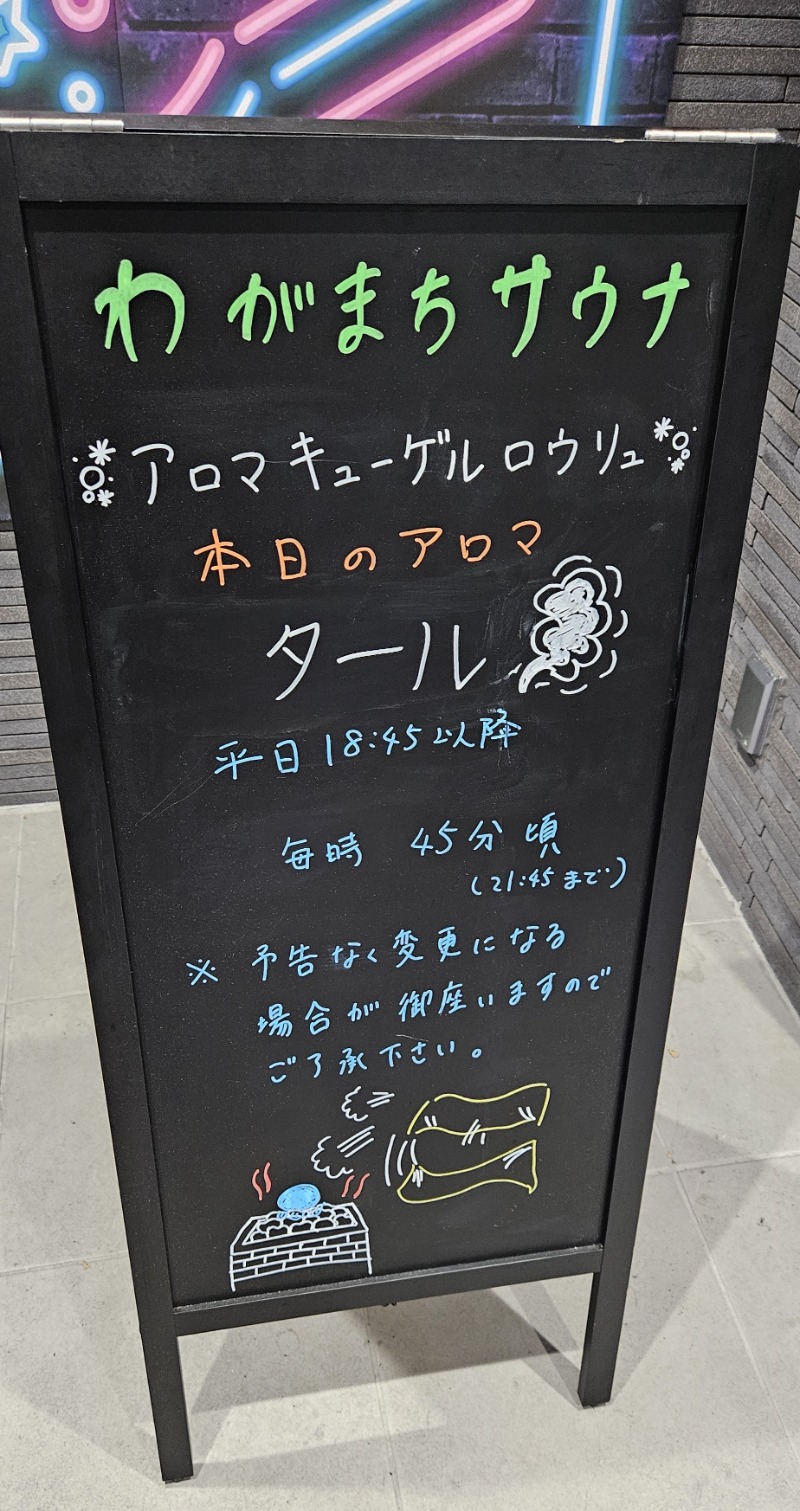 わがまちサウナ
アロマキューゲルロウリュ
本日のアロマ
タール
平日18:45以降
毎時 45分頃
(21:45まで)
※ 予告なく変更になる
場合が御座いますので
ご了承下さい。